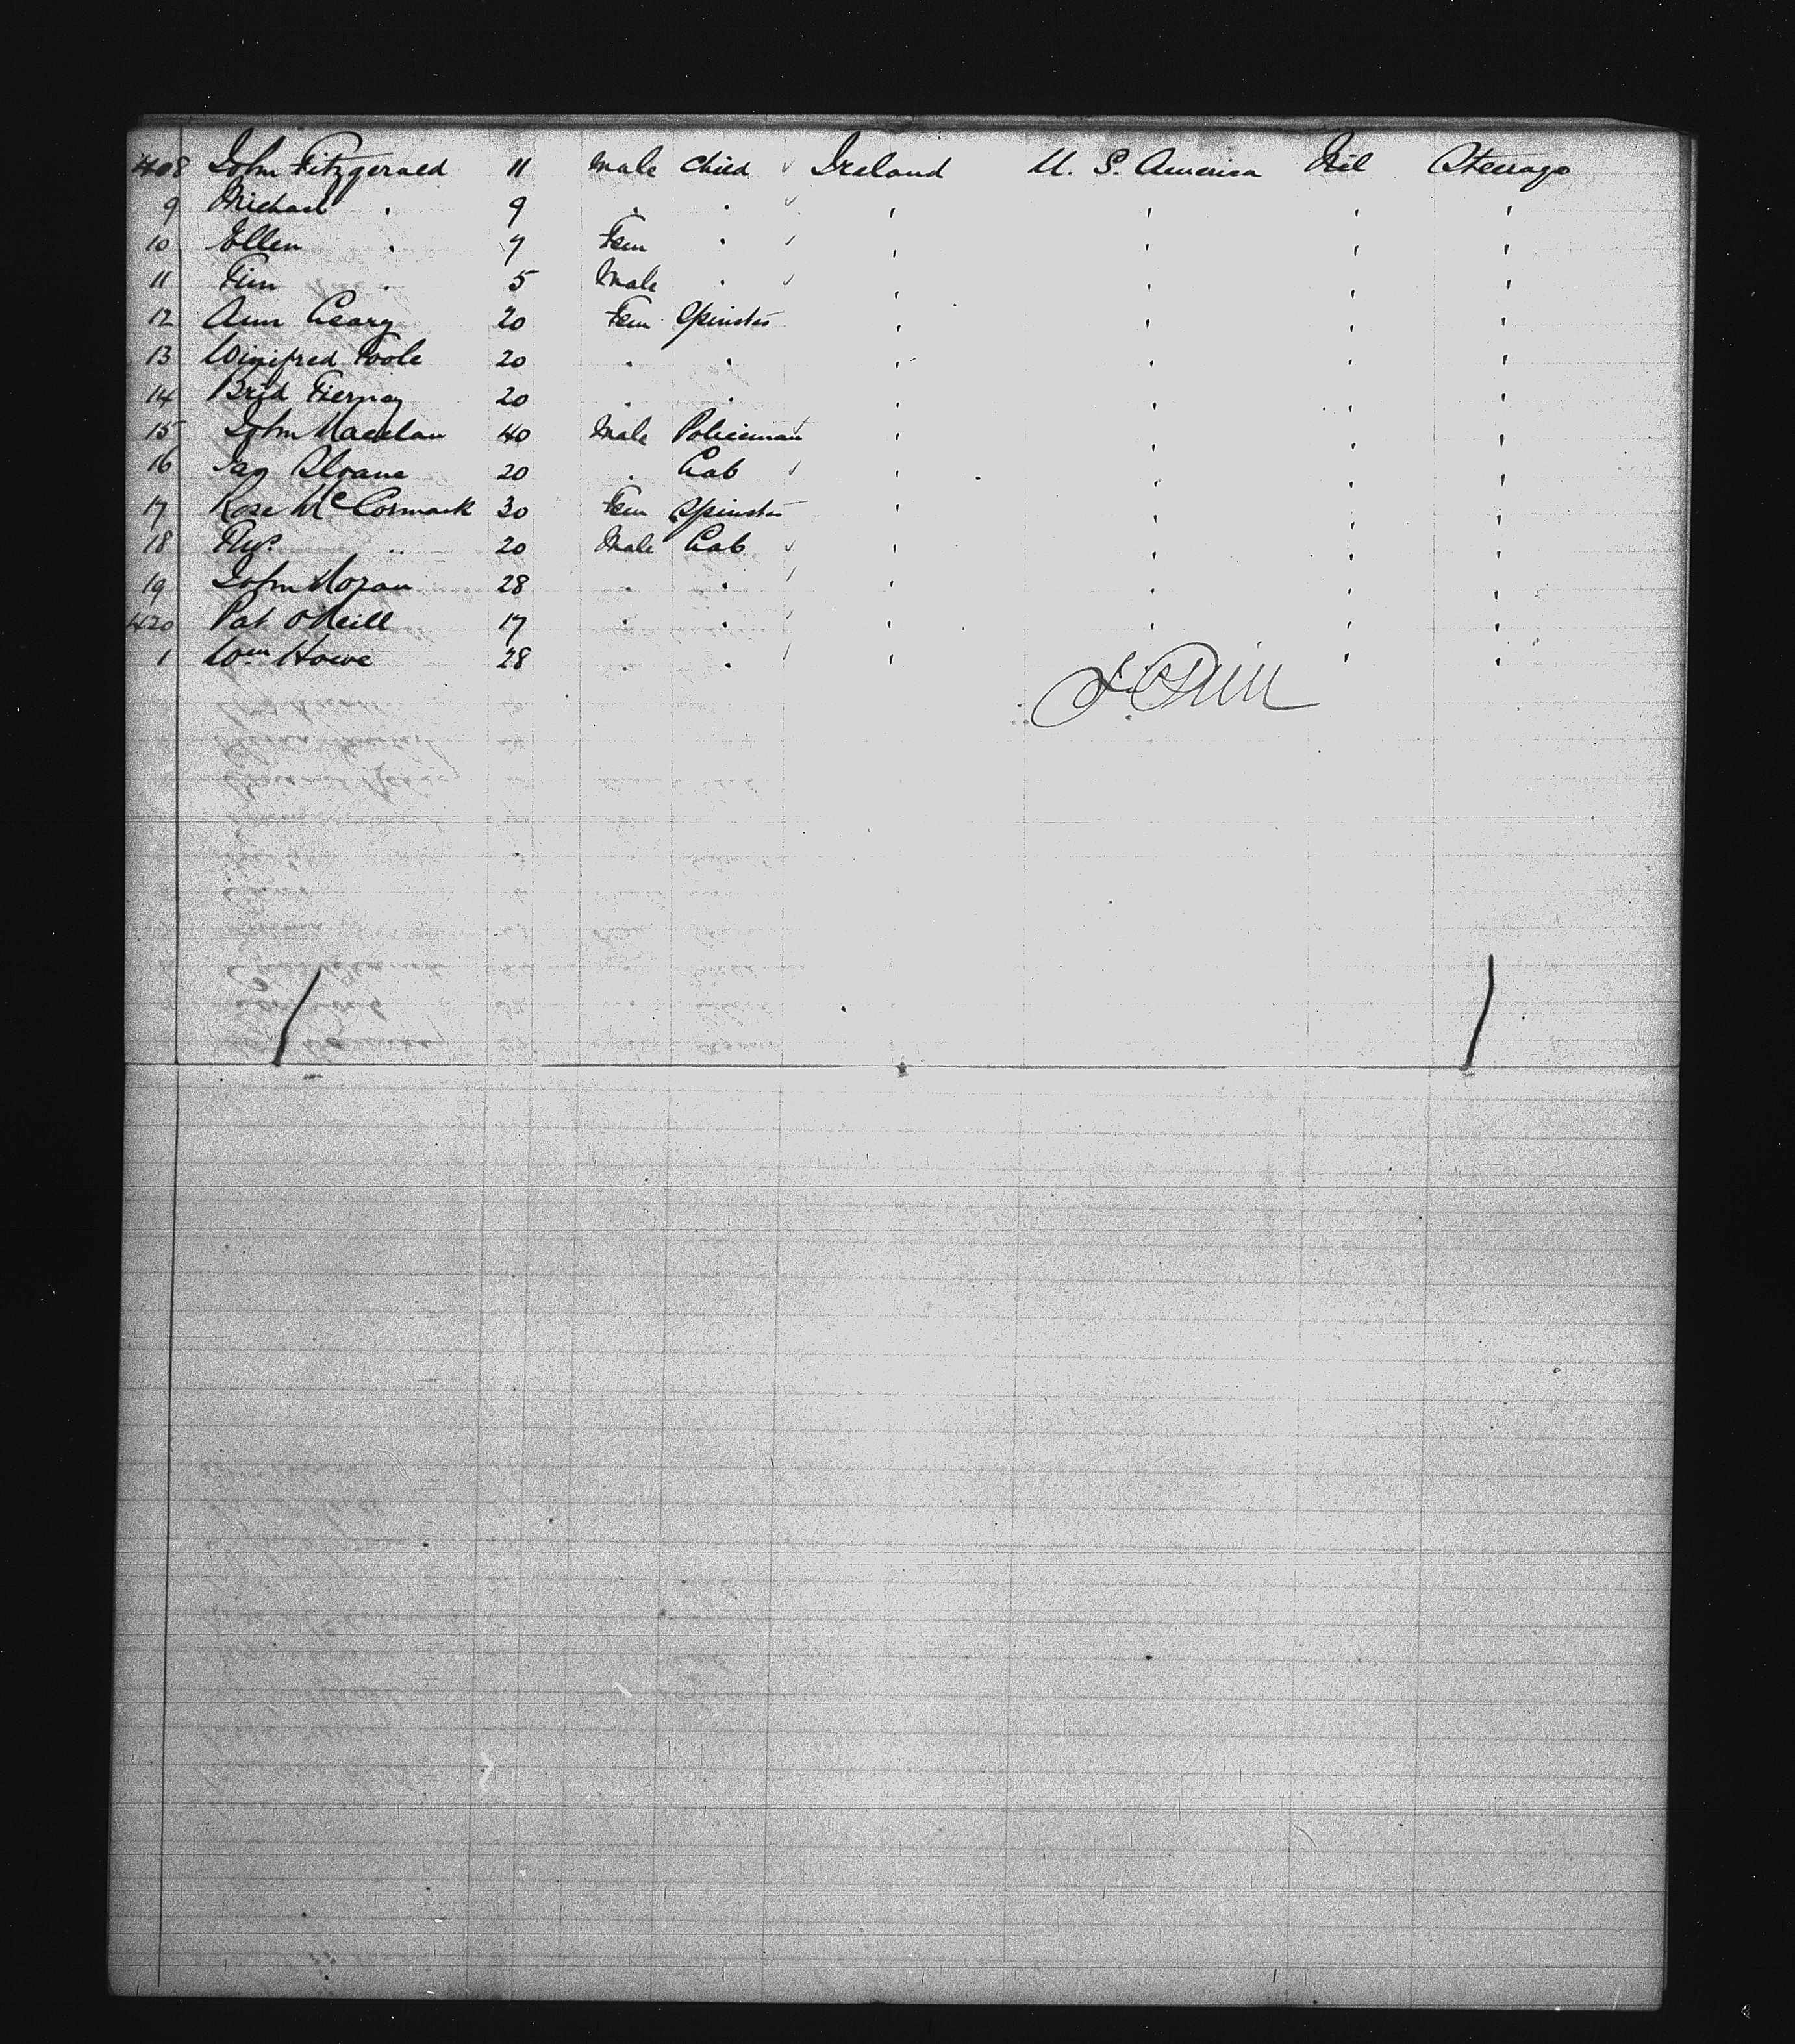 408 John Fitzgerald 11 Male Child Ireland U. S. America Nil Steerage
9 Michael " 9 " " " " " "
10 Ellen " 7 Fem " " " " "
11 5 Male " " " " "
12 Ann Geary 20 Fem Spinster " " " "
13 Winifred Toole 20 " " " " " "
14 Brid Tiernay 20 " " " " " "
15 John 40 Male Policeman " " " "
16 Sloane 20 " Lab " " " "
17 Rose McCormack 30 Fem Spinster " " " "
18 " 20 Male Lab " " " "
19 John Horan 28 " " " " " "
420 Pat O'Neill 17 " " " " " "
1 Wm Howe 28 " " " " "